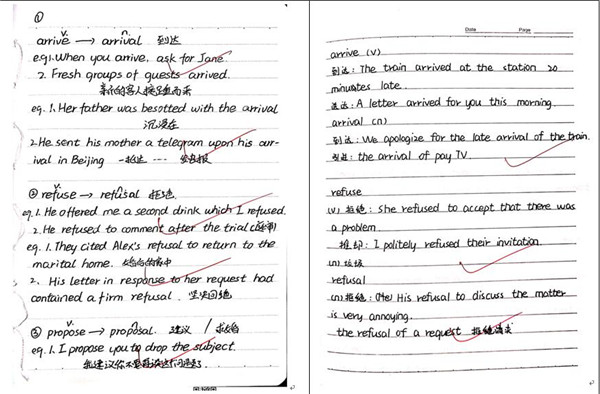 ①
v. n.
arrive → arrival 到达
eg1. When you arrive, ask for Jane.
2. Fresh groups of guests arrived.
新的客人接踵而来
eg. 1. Her father was besotted with the arrival
沉浸在
2. He sent his mother a telegram upon his arr-
ival in Beijing 一抵达 ... 发电报
② refuse → refusal 拒绝
eg. 1. He offered me a second drink which I refused.
2. He refused to comment after the trial
eg. 1. They cited Alex's refusal to return to the
marital home.
2. His letter in response to her request had
contained a firm refusal. 坚决回绝
③ propose → proposal. 建议 /
eg. 1. I propose you to drop the subject.
我建议你不要再谈这个问题了
Date Page
arrive (v)
到达: The train arrived at the station 20
minuates late.
送达: A letter arrived for you this morning.
arrival (n)
到达: We apologize for the late arrival of the train.
引进: the arrival of pay TV.
refuse
(v) 拒绝: She refused to accept that there was
a problem.
推却: I politely refused their invitation.
(n) 垃圾
refusal
(n) 拒绝: (He) His refusal to discuss the matter
is very annoying.
the refusal of a request 拒绝请求